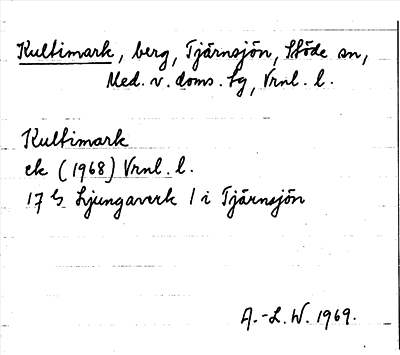 Kultimark, berg, Tjärnsjön, Stöde sn,
Med. v. doms. tg, Vrnl. l.
Kultimark
ek (1968) Vrnl. l.
17 G Ljungaverk 1 i Tjärnsjön
A.-L. W. 1969.